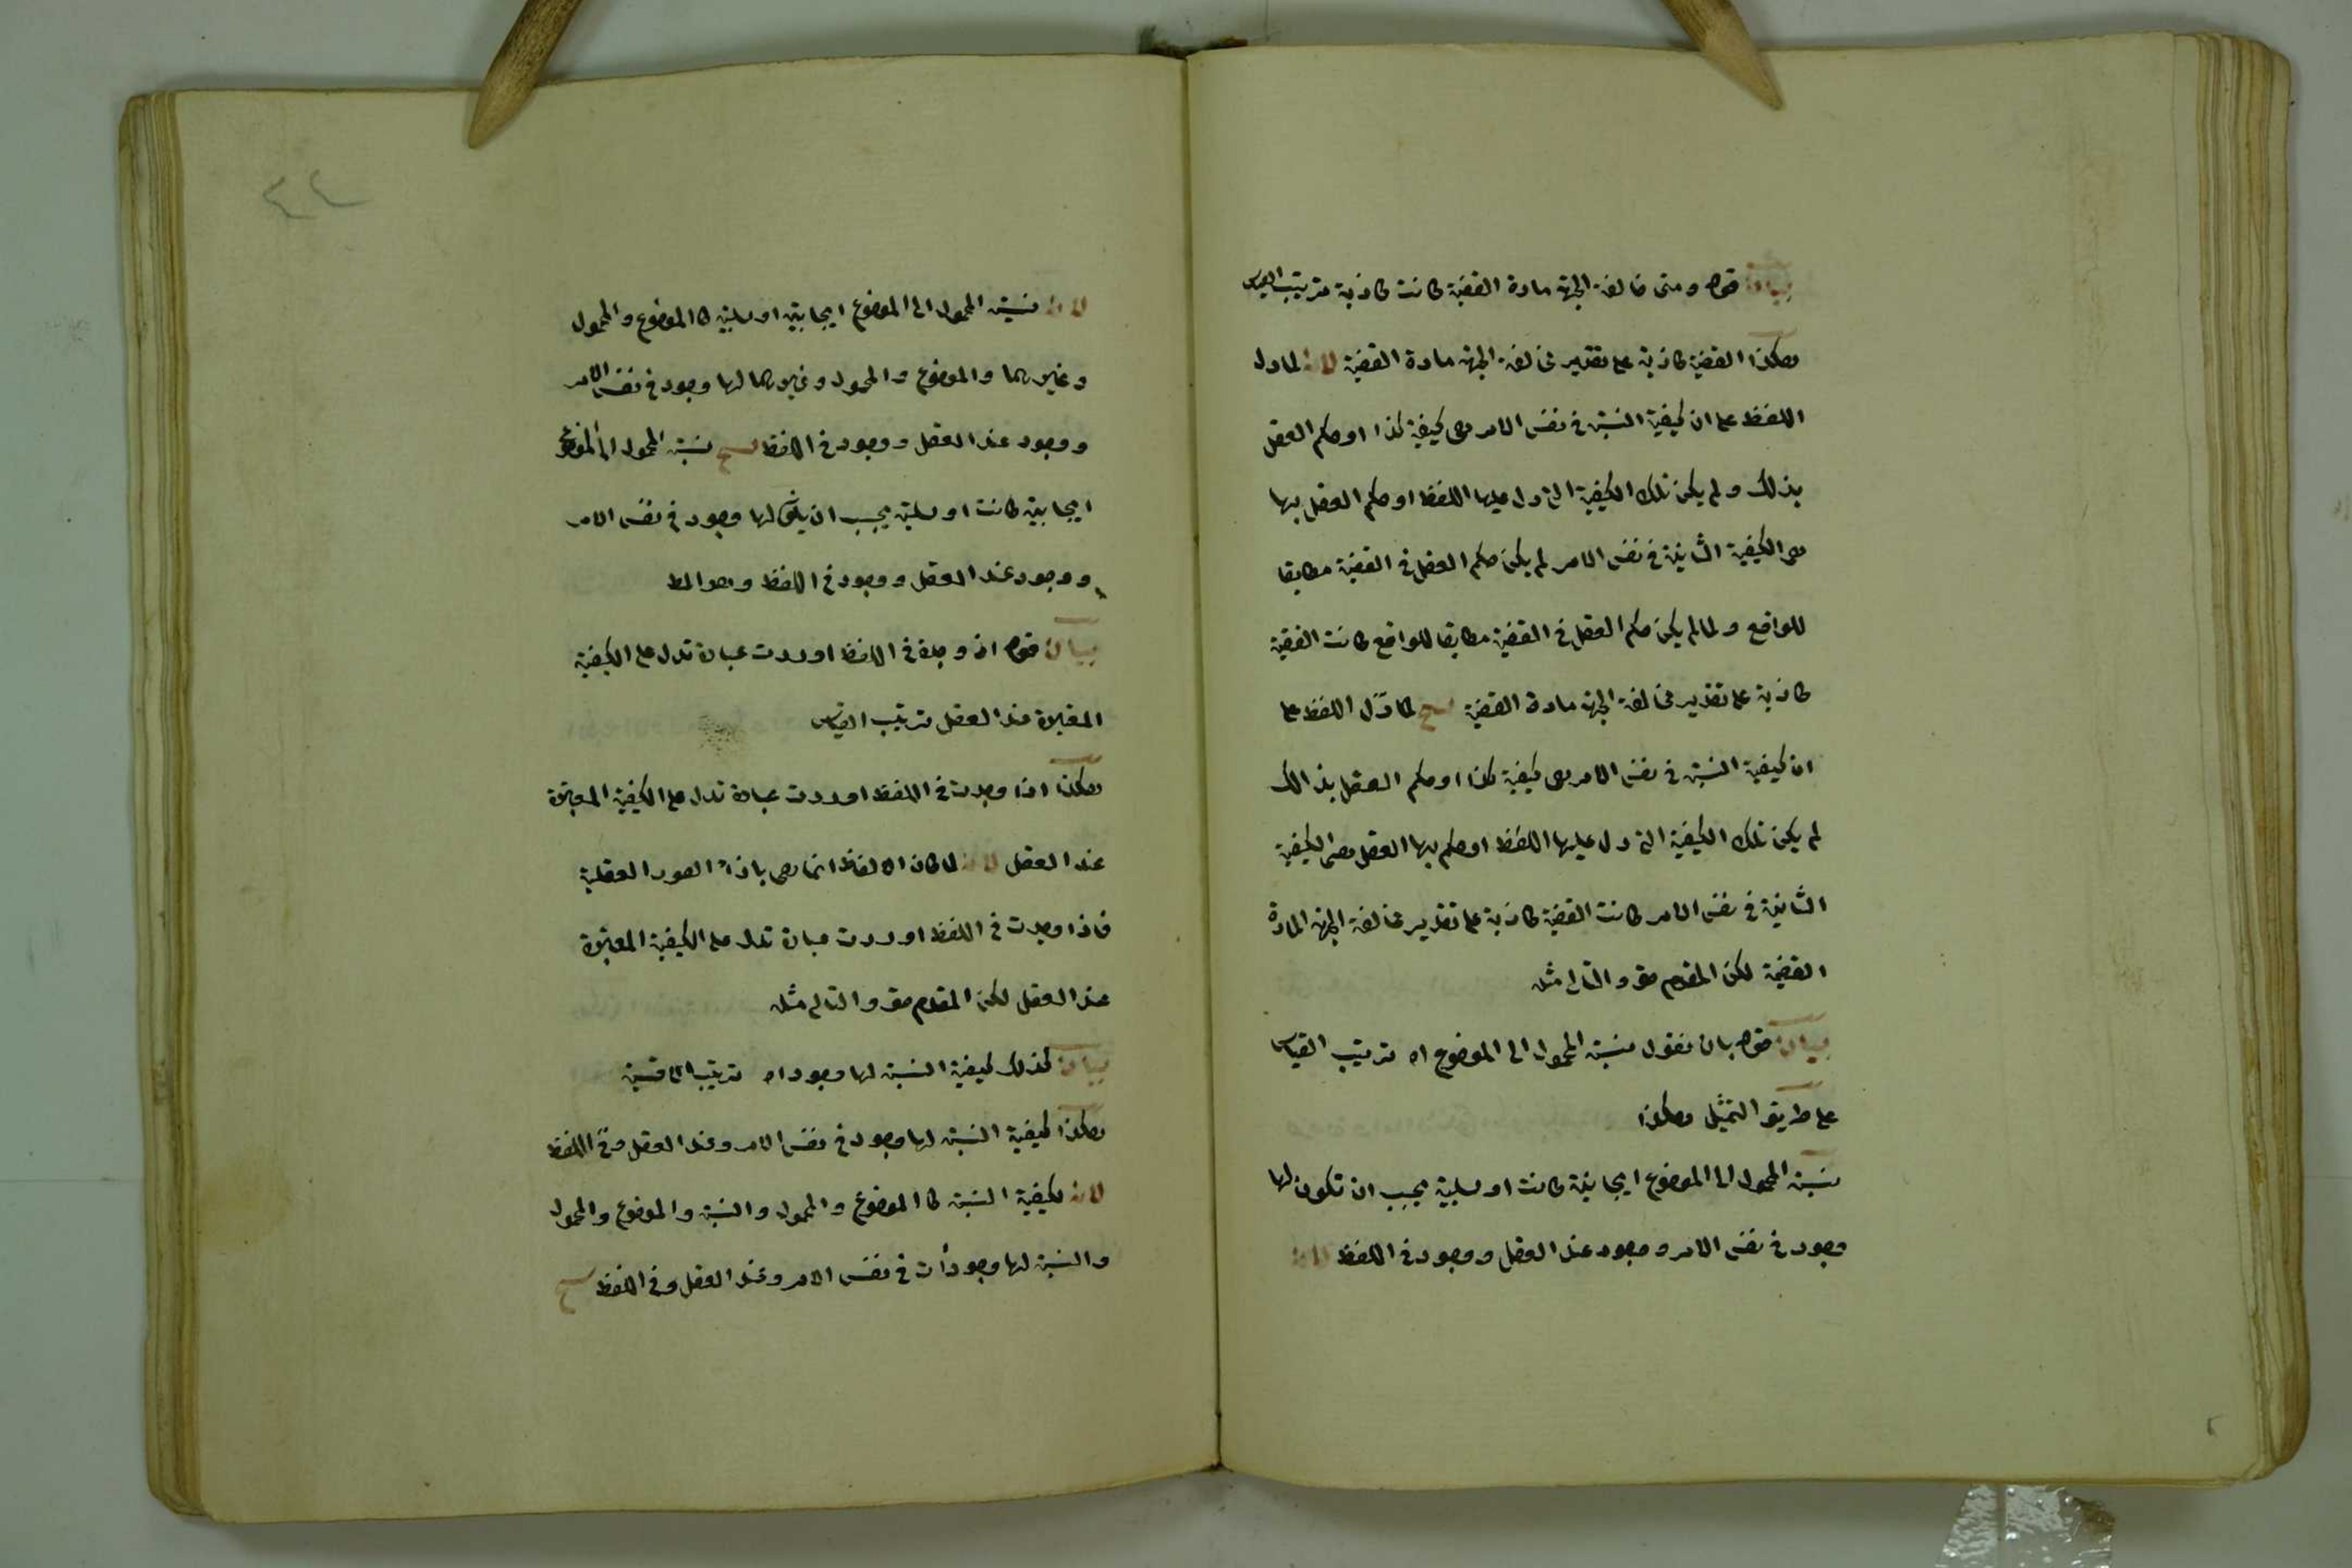 بيان قوله ومتى خالفة الجهة مادة القضية كانت كاذبة ترتيب القياس
هكذا القضية كاذبة على تقدير مخالفة الجهة مادة القضية لانه لما دل
اللفظ على ان كيفية النسبة في نفس الامر هى كيفية كذا او حكم العقل
بذلك ولم يكن تلك الكيفية التى دل عليها اللفظ او حكم العقل بها
هى الكيفية الثانية في نفس الامر لم يكن حكم العقل في القضية مطابقا
للواقع ولما لم يكن حكم العقل في القضية مطابقا للواقع كانت القضية
كاذبة على تقدير مخالفة الجهة مادة القضية لما دل اللفظ على
ان كيفية النسبة في نفس الامر هى كيفية كذا او حكم العقل بذالك
لم يكن تلك الكيفية التى دل عليها اللفظ او حكم بها العقل هى الكيفية
الثانية في نفس الامر كانت القضية كاذبة على تقدير مخالفة الجهة المادة
القضية لكن المقدم حق والتالى مثله
بيان قوله بان نقول نسبة المحمول الى الموضوع اه ترتيب القياس
على طريق التمثيل هكذا
نسبة المحمول الى الموضوع ايجابية كانت او سلبية يجب ان تكون لها
وجود في نفس الامر ووجود عند العقل ووجود في اللفظ لانه
٤٤
لانه نسبة المحمول الى الموضوع ايجابية او سلبية كا الموضوع والمحمول
وغيرهما والموضوع والمحمول وغيرهما لها وجود في نفس الامر
ووجود عند العقل ووجود في اللفظ نسبة المحمول الى الموضوع
ايجابية كانت او سلبية يجب ان لها وجود في نفس الامر
ووجود عند العقل ووجود في اللفظ وهو المط
بيان قوله اذ وجدة في اللفظ اوردت عبارة تدل على الكيفية
المعتبرة عند العقل ترتيب القياس
هكذا اذا وجدت في اللفظ اوردت عبارة تدل على الكيفية المعتبرة
عند العقل لانه لما كان الالفاظ انما هى باذاء الصور العقلية
فاذا وجدت في اللفظ اوردت عبارة تدل على الكيفية المعتبرة
عند العقل لكن المقدم حق والتالى مثله
بيان كذلك كيفية النسبة لها وجود اه ترتيب الاقيسة
هكذا كيفية النسبة لها وجود في نفس الامر وعند العقل وفي اللفظ
لانه كيفية النسبة كا الموضوع والمحمول والنسبة والموضوع والمحمول
والنسبة لها وجودات في نفس الامر وعند العقل وفي اللفظ